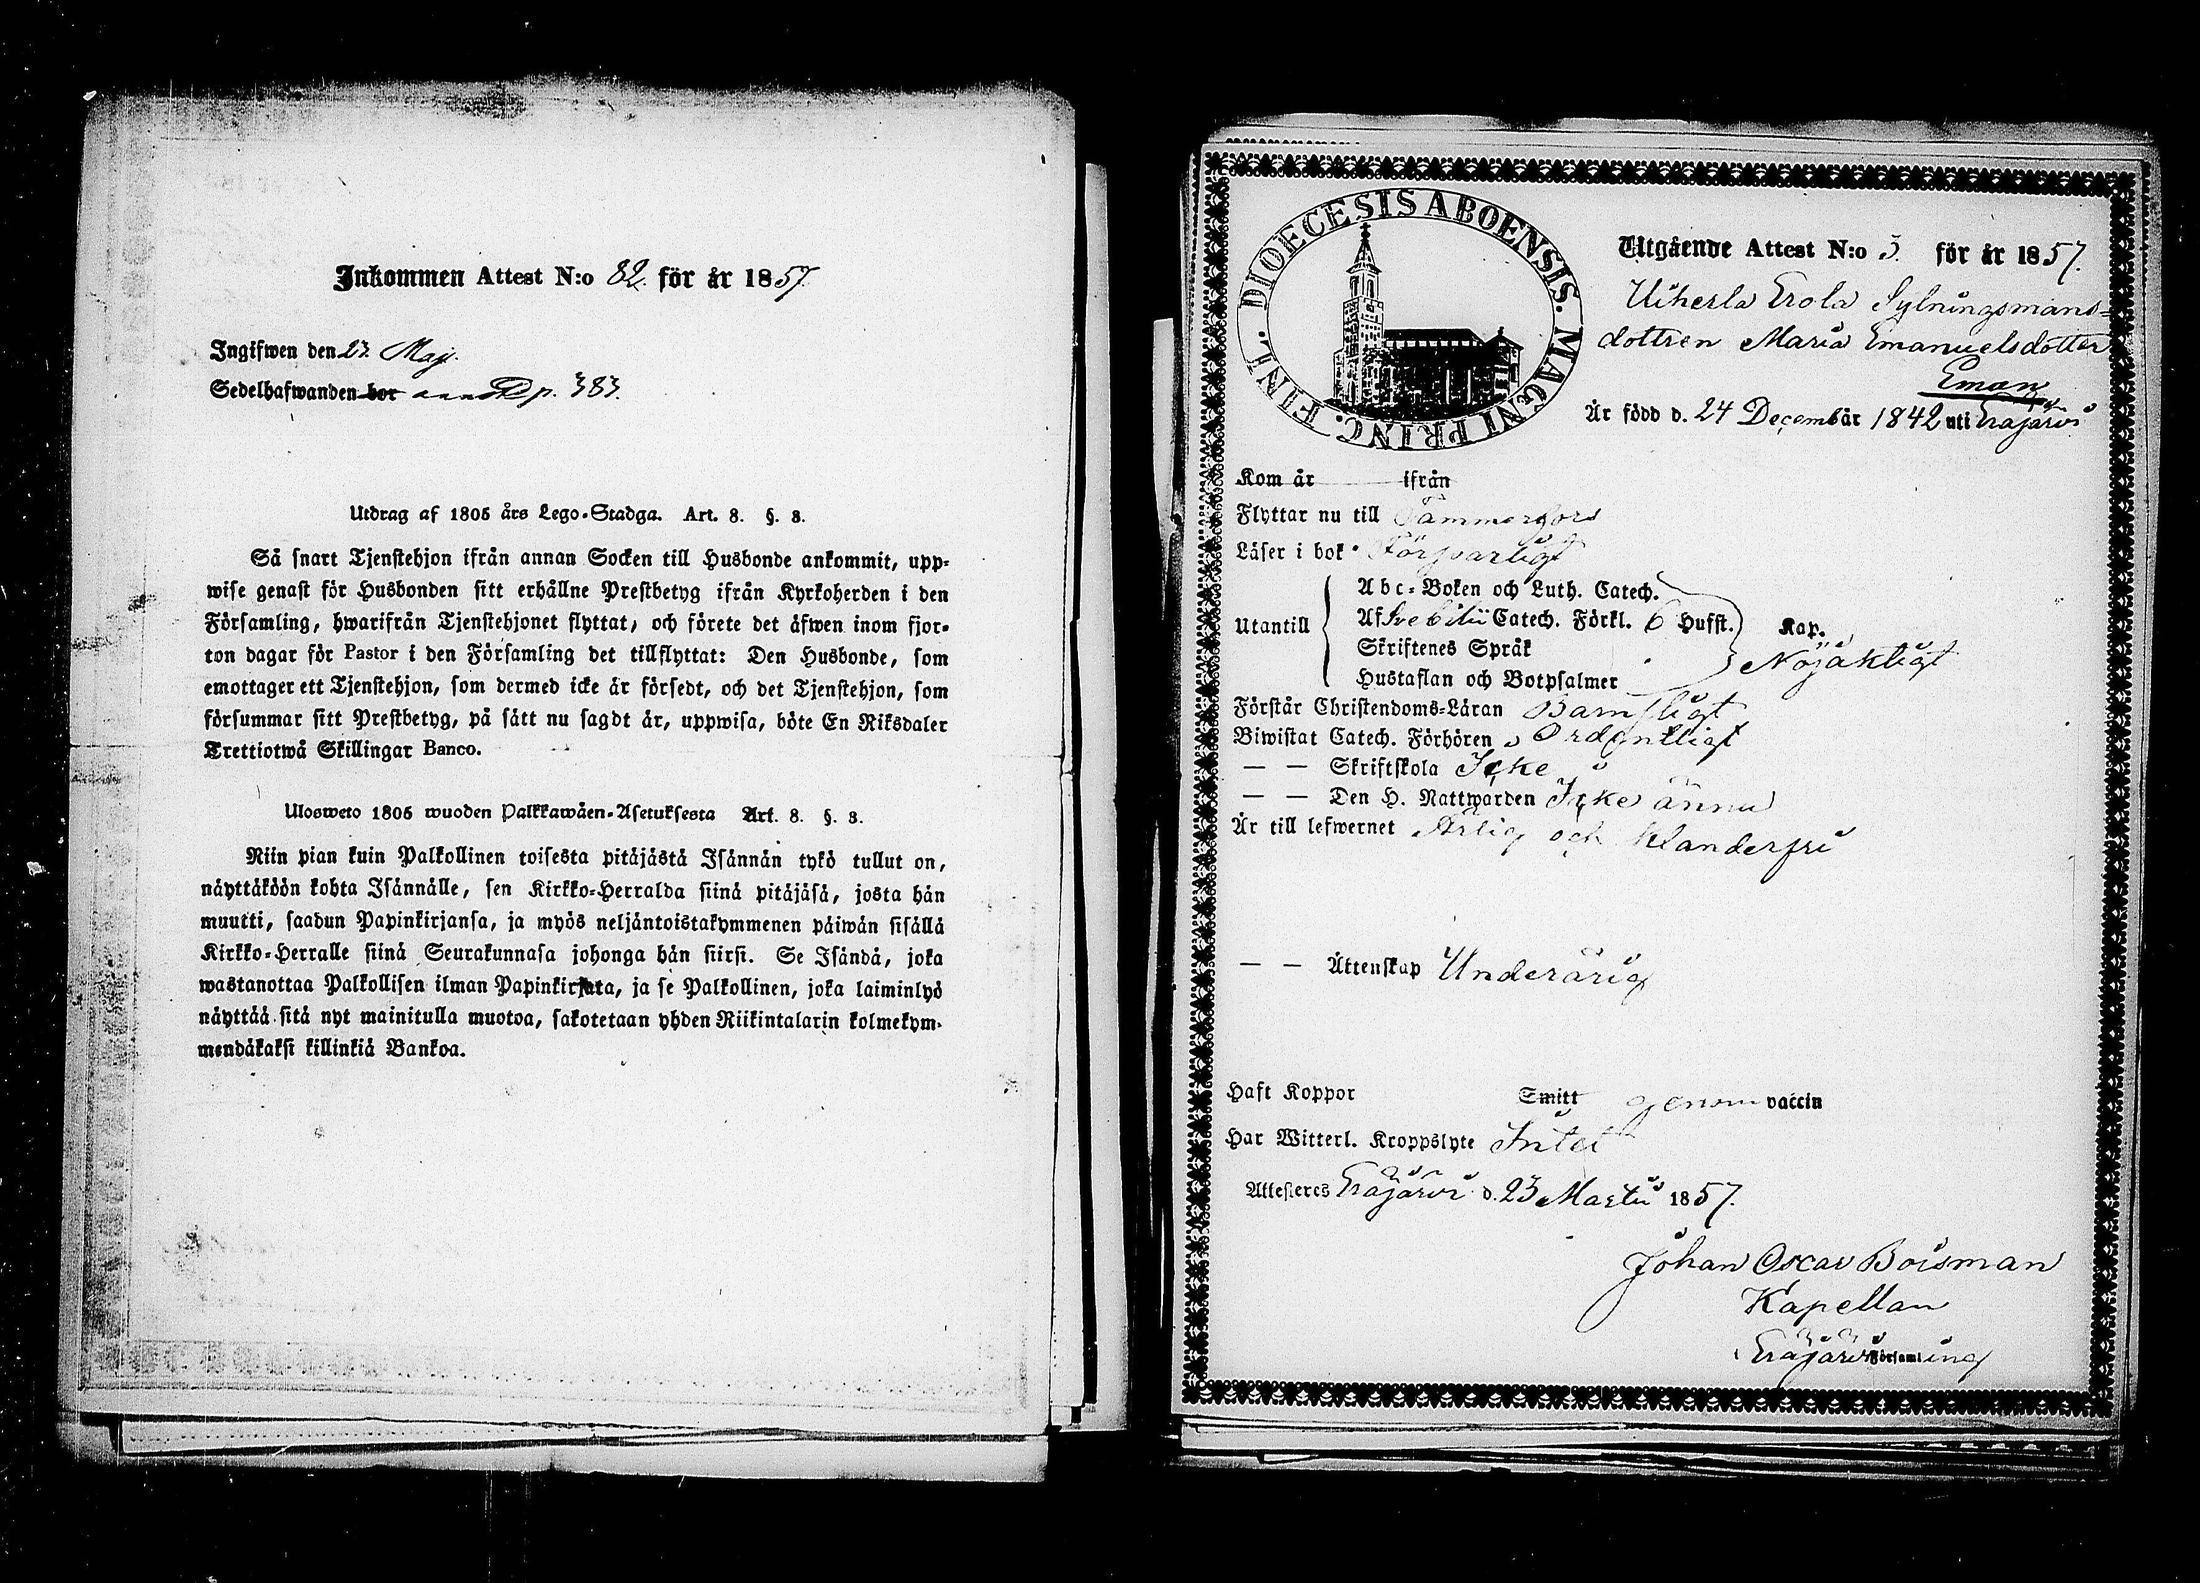 Inkommen Attest N:o 82. för år 1857.
Ingifwen den 23 Maj.
Sedelhafwanden bor p. 383.
Utdrag af 1805 års Lego-Stadga. Art. 8. §. 8.
Så snart Tjenstehjon ifrån annan Socken till Husbonde ankommit, upp-
wise genast för Husbonden sitt erhållne Prestbetyg ifrån Kyrkoherden i den
Församling, hwarifrån Tjenstehjonet flyttat, och förete det äfwen inom fjor-
ton dagar för Pastor i den Församling det tillflyttat: Den Husbonde, som
emottager ett Tjenstehjon, som dermed icke är försedt, och det Tjenstehjon, som
försummar sitt Prestbetyg, på sätt nu sagdt är, uppwisa, böte En Riksdaler
Trettiotwå Skillingar Banco.
Ulosweto 1805 wuoden Palkkawäen-Asetuksesta Art. 8. §. 8.
Niin pian kuin Palkollinen toisesta pitäjästä Isännän tykö tullut on,
näyttäköön kohta Isännälle, sen Kirkko-Herralda siinä pitäjäsä, josta hän
muutti, saadun Papinkirjansa, ja myös neljäntoistakymmenen päiwän sisällä
Kirkko-Herralle siinä Seurakunnasa johonga hän siirsi. Se Isändä, joka
wastanottaa Palkollisen ilman Papinkirjata, ja se Palkollinen, joka laiminlyö
näyttää sitä nyt mainitulla muotoa, sakotetaan yhden Riikintalarin kolmekym-
mendäkaksi killinkiä Bankoa.
DIOECESIS ABOENSIS. MAGNI PRINC. FINL.
Utgående Attest N:o 5 för år 1857.
Uiherla Erola Sytningsmans-
dottren Maria Emanuelsdotter
Eman
Är född d. 24 Decembär 1842 uti Eräjärvi
Kom år ifrån
Flyttar nu till Tammerfors
Läser i bok Försvarligt
Utantill
Abc-Boken och Luth. Catech.
Af Svebilii Catech. Förkl. 6 Hufst. Kap.
Skriftenes Språk
Nöjaktligt
Hustaflan och Botpsalmer
Förstår Christendoms-Läran Barnsligt
Biwistat Catech. Förhören Ordentligt
— — Skriftskola Icke
— — Den H. Nattwarden Icke ännu
Är till lefwernet Ärlig och klanderfri
— — Äktenskap Underårig
Haft Koppor Smitt genom vaccin
Har Witterl. Kroppslyte Intet
Attesteres Eräjärvi d. 23 Martii 1857.
Johan Oscar Boisman
Kapellan
Eräjärvi Församling